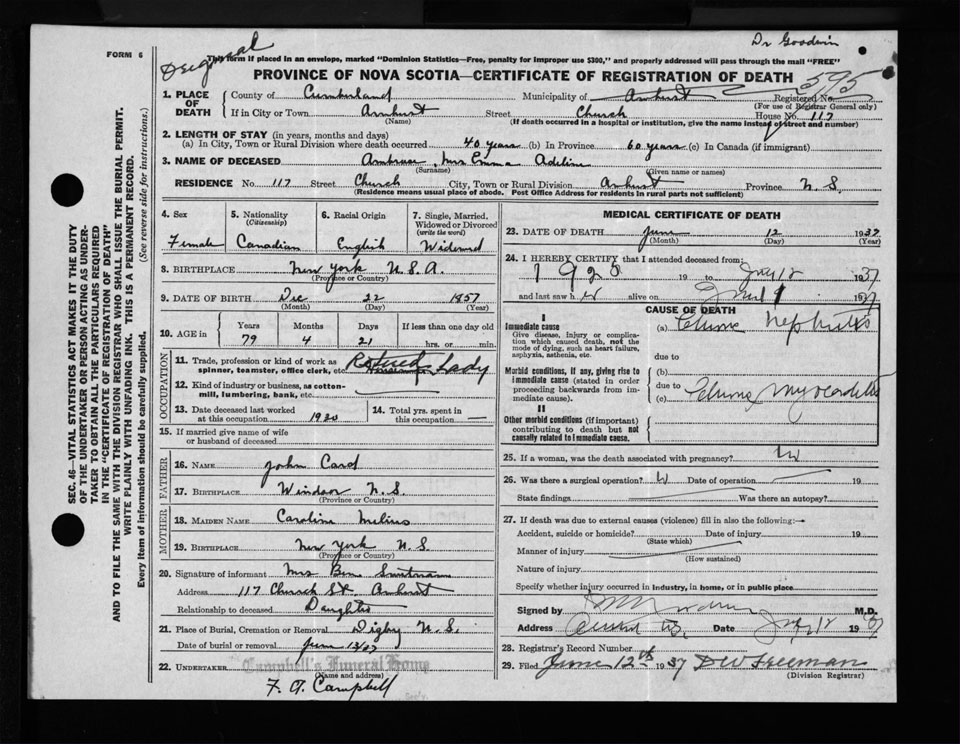 Dr Goodwin
FORM 6
Original
This form if placed in an envelope, marked "Dominion Statistics—Free, penalty for improper use $300," and properly addressed will pass through the mail "FREE"
PROVINCE OF NOVA SCOTIA—CERTIFICATE OF REGISTRATION OF DEATH
595
1. PLACE OF DEATH
County of Cumberland Municipality of Amherst Registered No.
(For use of Registrar General only)
If in City or Town Amherst Street Church House No. 117
(Name) (If death occurred in a hospital or institution, give the name instead of street and number)
2. LENGTH OF STAY (in years, months and days)
(a) In City, Town or Rural Division where death occurred 40 years (b) In Province 60 years (c) In Canada (if immigrant)
3. NAME OF DECEASED Ambrose, Mrs Emma Adeline
(Surname) (Given name or names)
RESIDENCE No. 117 Street Church City, Town or Rural Division Amherst Province N.S.
(Residence means usual place of abode. Post Office Address for residents in rural parts not sufficient)
4. Sex
Female
5. Nationality
(Citizenship)
Canadian
6. Racial Origin
English
7. Single, Married, Widowed or Divorced
(write the word)
Widowed
8. BIRTHPLACE New York U.S.A.
(Province or Country)
9. DATE OF BIRTH Dec 22 1857
(Month) (Day) (Year)
10. AGE in
Years Months Days If less than one day old
79 4 21 hrs. or min.
OCCUPATION
11. Trade, profession or kind of work as
spinner, teamster, office clerk, etc. Retired Lady
12. Kind of industry or business, as cotton-
mill, lumbering, bank, etc.
13. Date deceased last worked
at this occupation 1920
14. Total yrs. spent in
this occupation
15. If married give name of wife
or husband of deceased
FATHER
16. NAME John Card
17. BIRTHPLACE Windsor N.S.
(Province or Country)
MOTHER
18. MAIDEN NAME Caroline Melius
19. BIRTHPLACE New York U.S.
(Province or Country)
20. Signature of informant Mrs Ben
Address 117 Church St. Amherst
Relationship to deceased Daughter
21. Place of Burial, Cremation or Removal Digby N.S.
Date of burial or removal June 13/37
22. UNDERTAKER Campbell's Funeral Home
(Name and address)
F. A. Campbell
MEDICAL CERTIFICATE OF DEATH
23. DATE OF DEATH June 12 1937
(Month) (Day) (Year)
24. I HEREBY CERTIFY that I attended deceased from:
19 to 12 1937
and last saw h er alive on 1937
CAUSE OF DEATH
I
Immediate cause
Give disease, injury or complication which caused death, not the mode of dying, such as heart failure, asphyxia, asthenia, etc.
(a) Chronic Nephritis
due to
Morbid conditions, if any, giving rise to immediate cause (stated in order proceeding backwards from immediate cause).
(b)
due to
(c) Chronic Myocarditis
II
Other morbid conditions (if important) contributing to death but not causally related to immediate cause.
25. If a woman, was the death associated with pregnancy?
26. Was there a surgical operation? Date of operation 19
State findings Was there an autopsy?
27. If death was due to external causes (violence) fill in also the following:—
Accident, suicide or homicide? Date of injury 19
(State which)
Manner of injury
(How sustained)
Nature of injury
Specify whether injury occurred in industry, in home, or in public place
Signed by M.D.
Address Date 12 1937
28. Registrar's Record Number
29. Filed June 12th 1937 D W Freeman
(Division Registrar)
SEC. 46—VITAL STATISTICS ACT MAKES IT THE DUTY
OF THE UNDERTAKER OR PERSON ACTING AS UNDER-
TAKER TO OBTAIN ALL THE PARTICULARS REQUIRED
IN THE "CERTIFICATE OF REGISTRATION OF DEATH"
AND TO FILE THE SAME WITH THE DIVISION REGISTRAR WHO SHALL ISSUE THE BURIAL PERMIT.
WRITE PLAINLY WITH UNFADING INK. THIS IS A PERMANENT RECORD.
Every item of information should be carefully supplied. (See reverse side for instructions.)